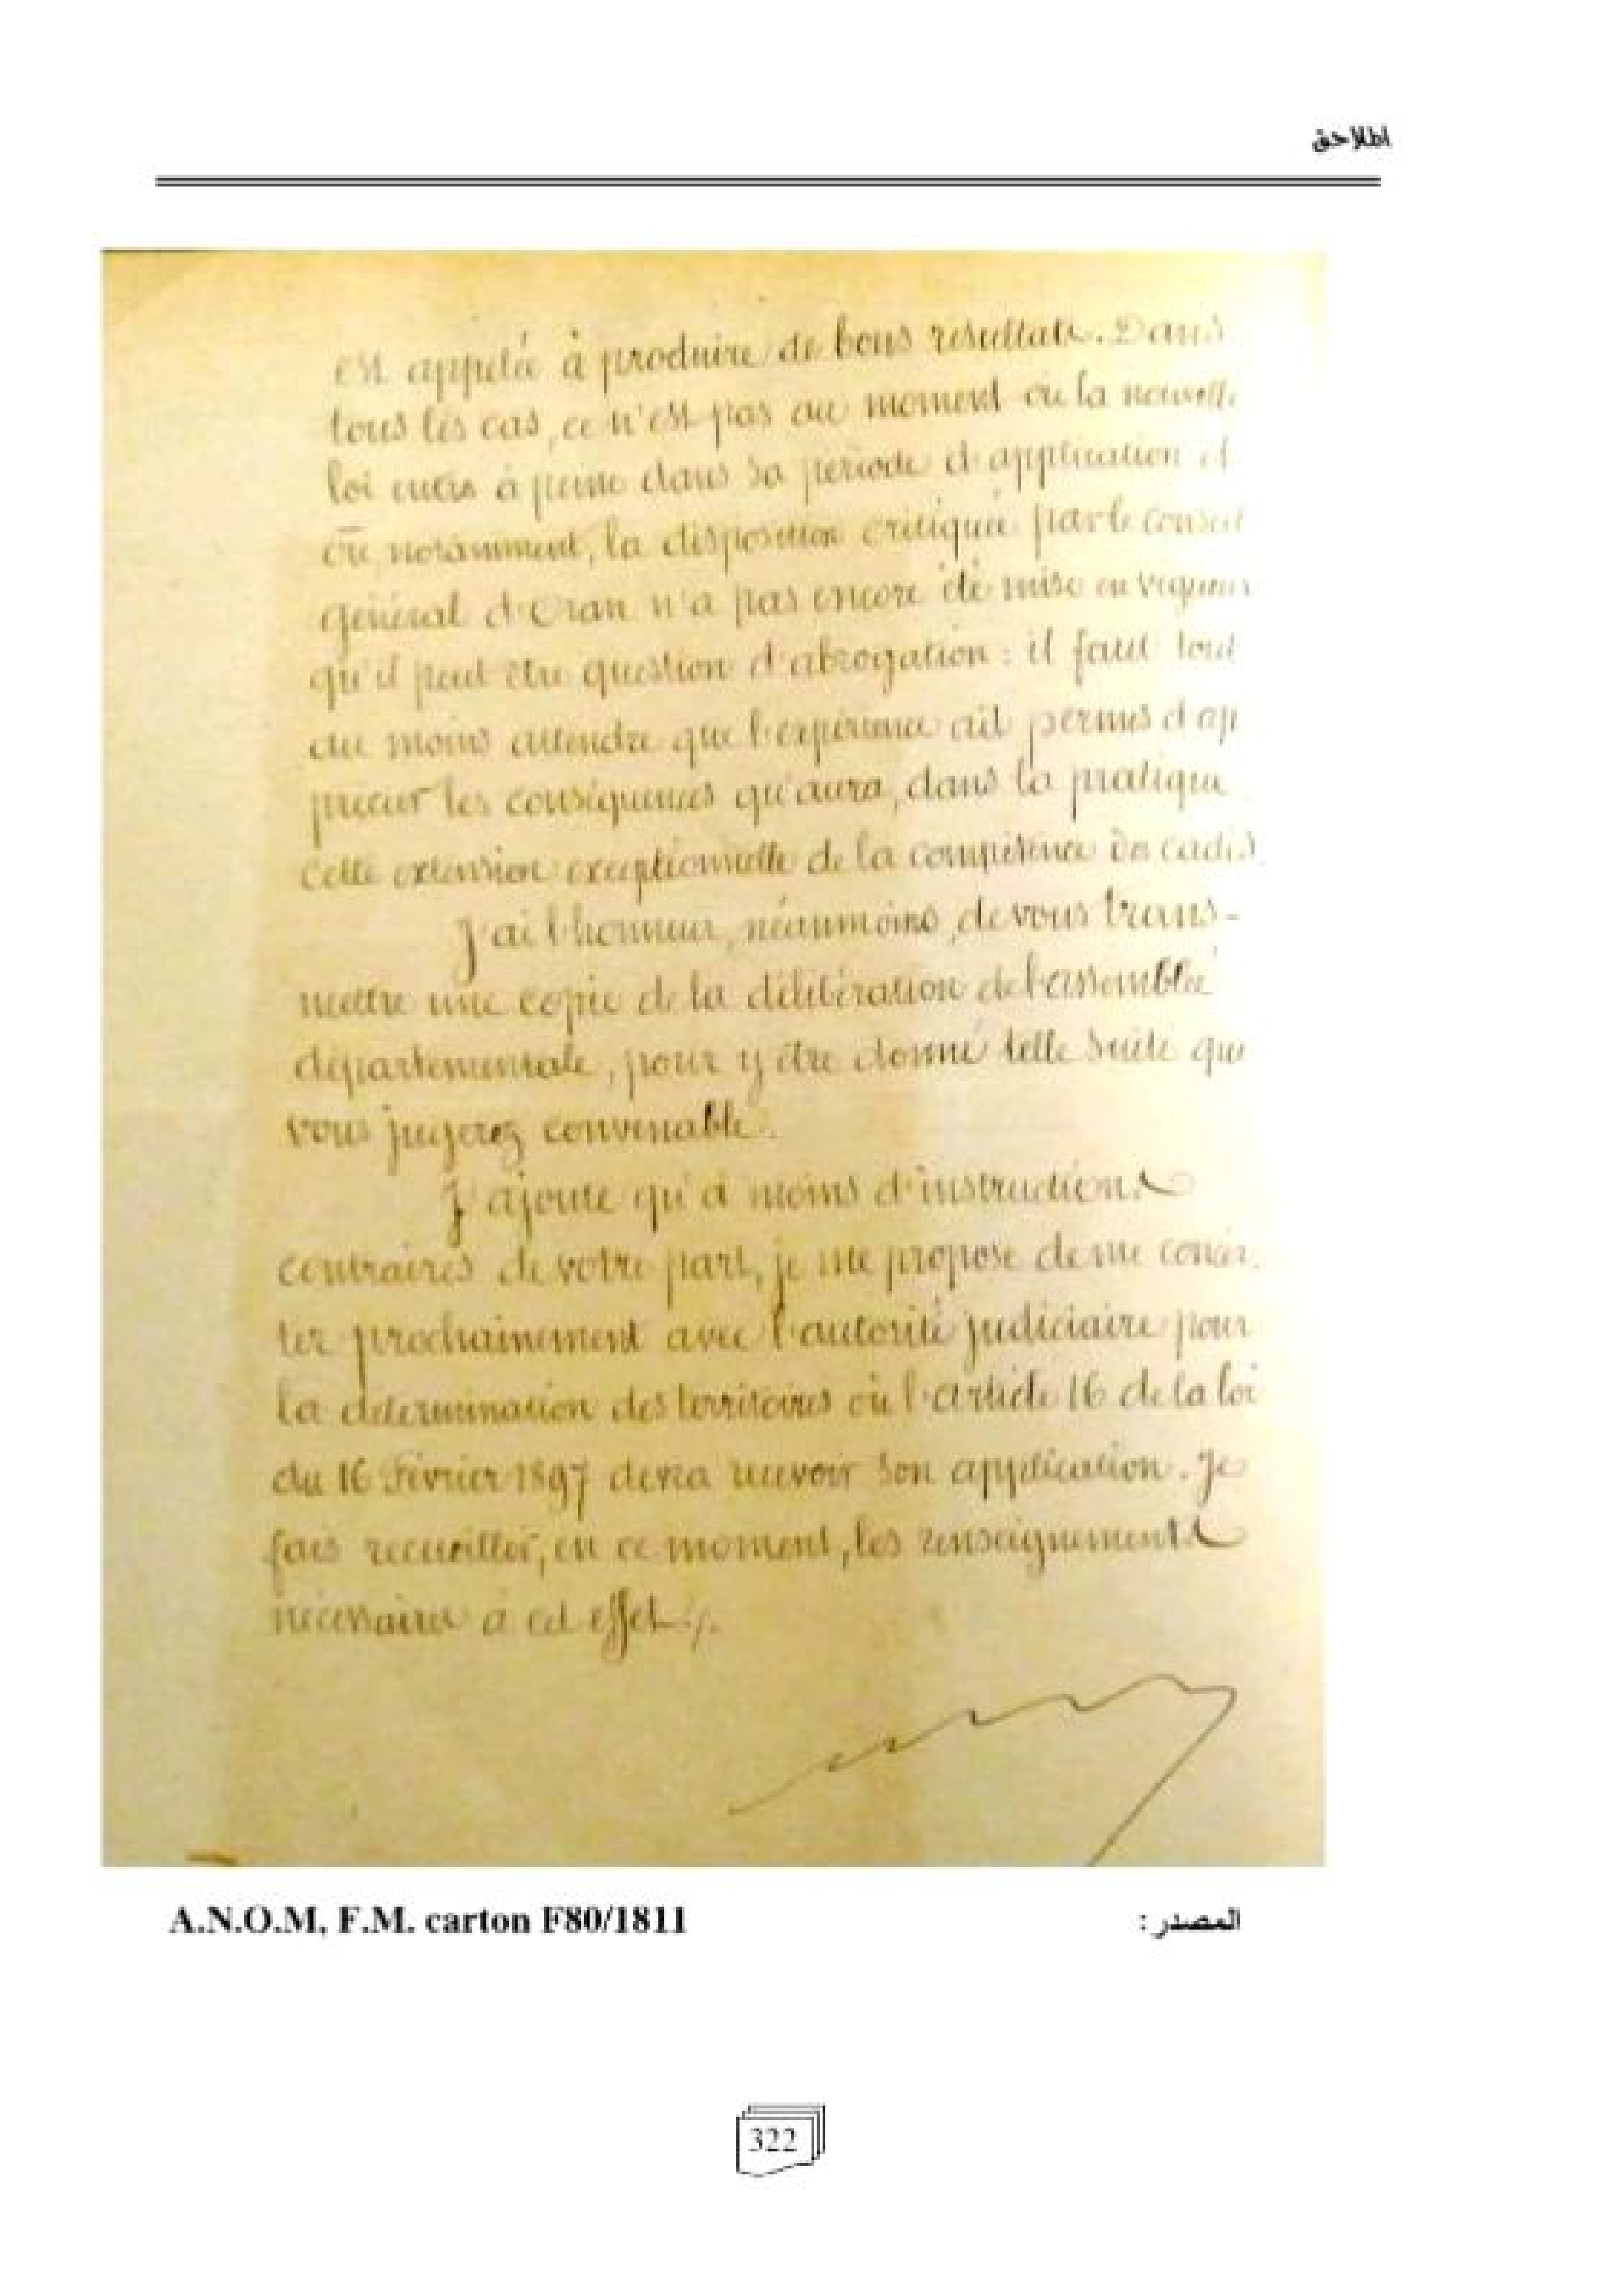 الملاحق
est appelée à produire de bons résultats. Dans
tous les cas, ce n'est pas au moment où la nouvelle
loi entre à peine dans sa période d'application et
où, notamment, la disposition critiquée par le conseil
général d'Oran n'a pas encore été mise en vigueur
qu'il peut être question d'abrogation : il faut tout
au moins attendre que l'expérience ait permis d'ap
précier les conséquences qu'aura, dans la pratique
cette extension exceptionnelle de la compétence des cadis.
J'ai l'honneur, néanmoins, de vous trans-
mettre une copie de la délibération de l'assemblée
départementale, pour y être donné telle suite que
vous jugerez convenable.
J'ajoute qu'à moins d'instructions
contraires de votre part, je me propose de me concer
ter prochainement avec l'autorité judiciaire pour
la détermination des territoires où l'article 16 de la loi
du 16 Février 1897 devra recevoir son application. Je
fais recueillir, en ce moment, les renseignements
nécessaires à cet effet ./.
A.N.O.M, F.M. carton F80/1811 المصدر :
322